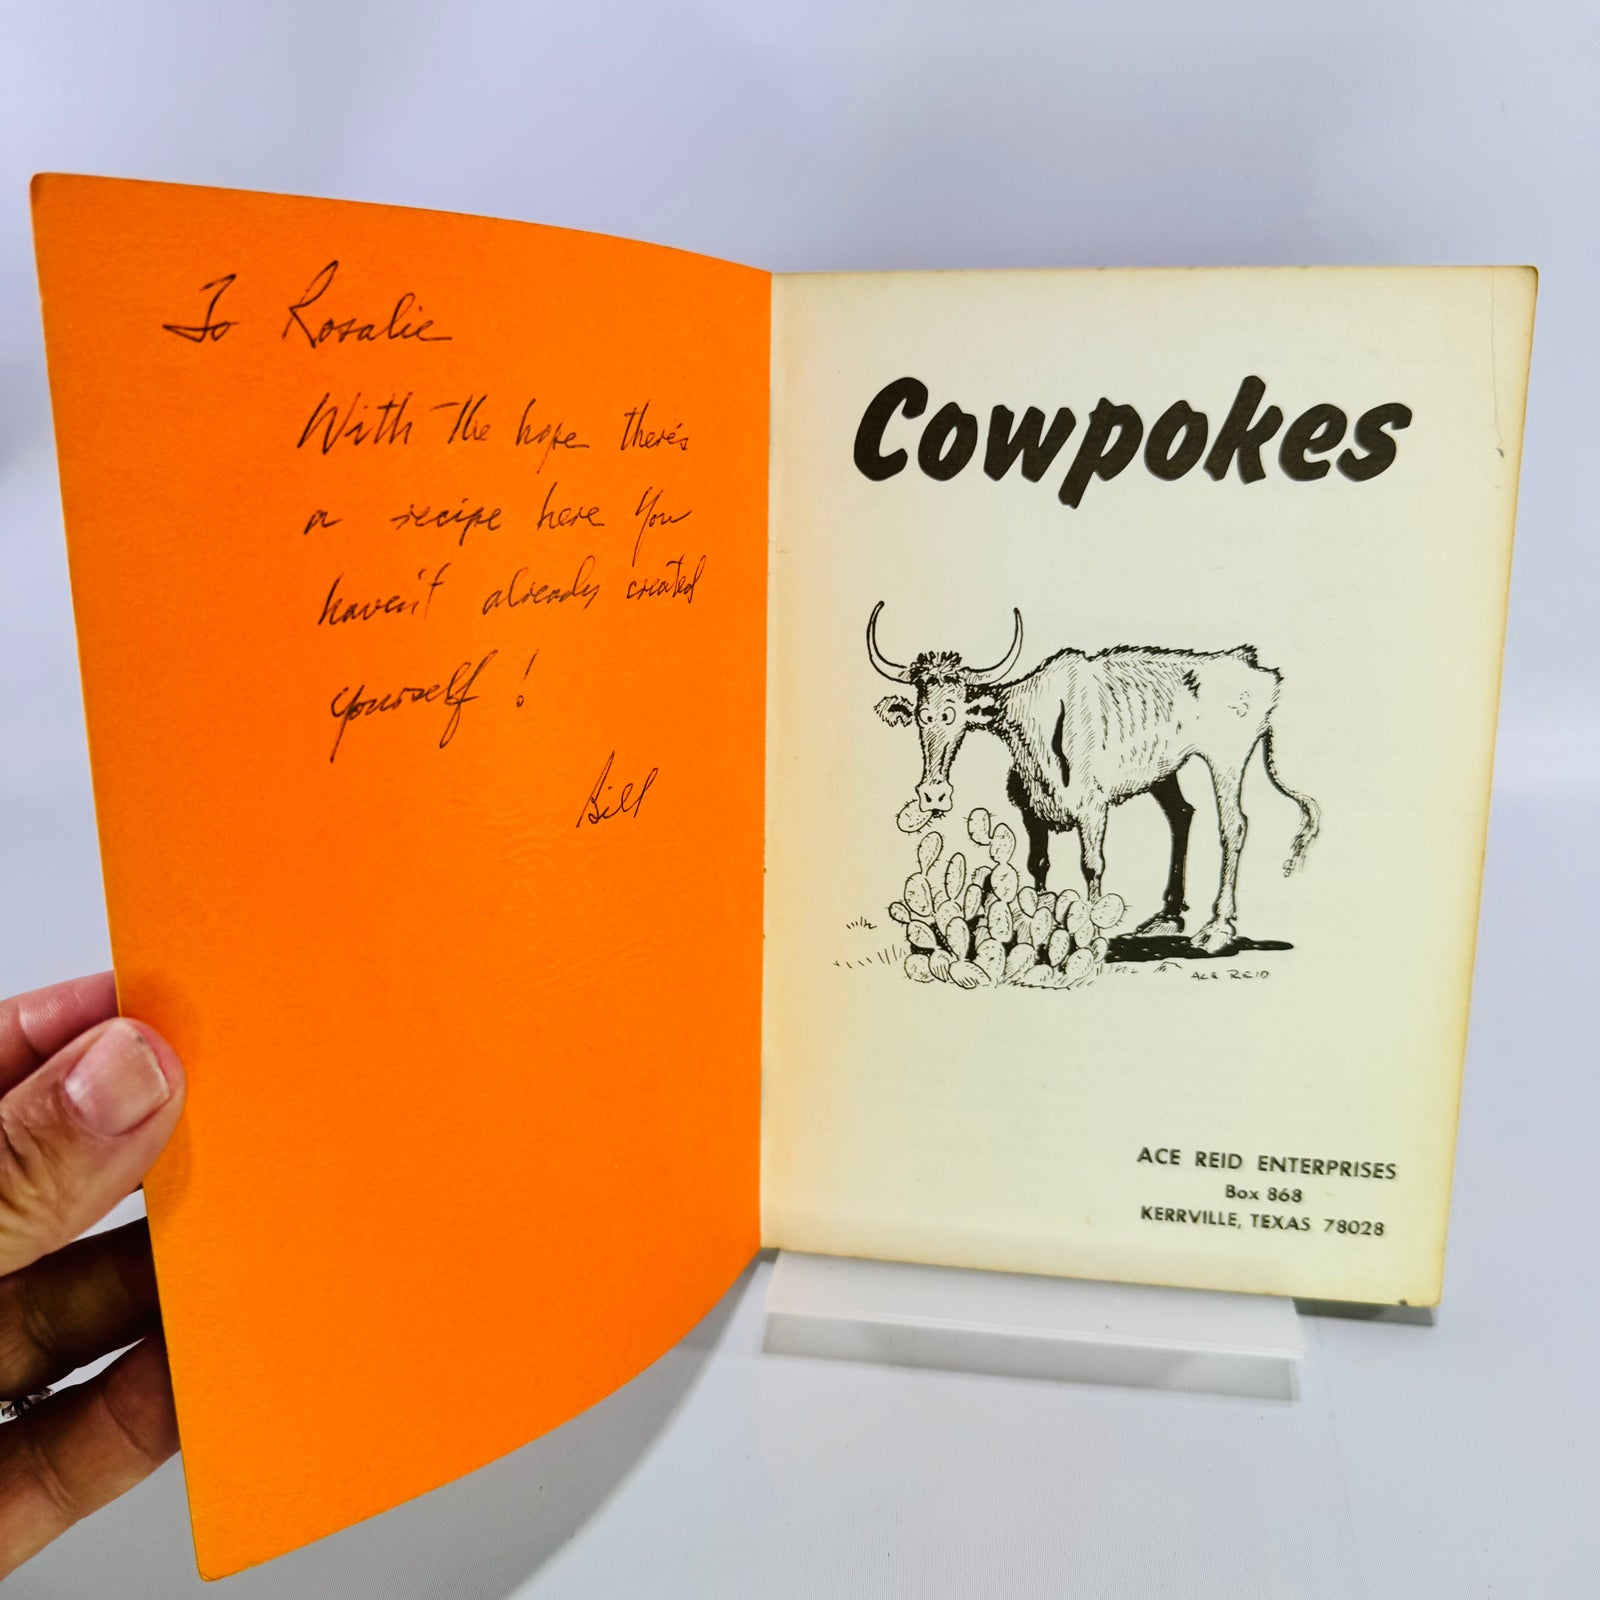 To Rosalie
With the hope there's
a recipe here you
haven't already created
yourself!
Bill
Cowpokes
ACE REID
ACE REID ENTERPRISES
Box 868
KERRVILLE, TEXAS 78028